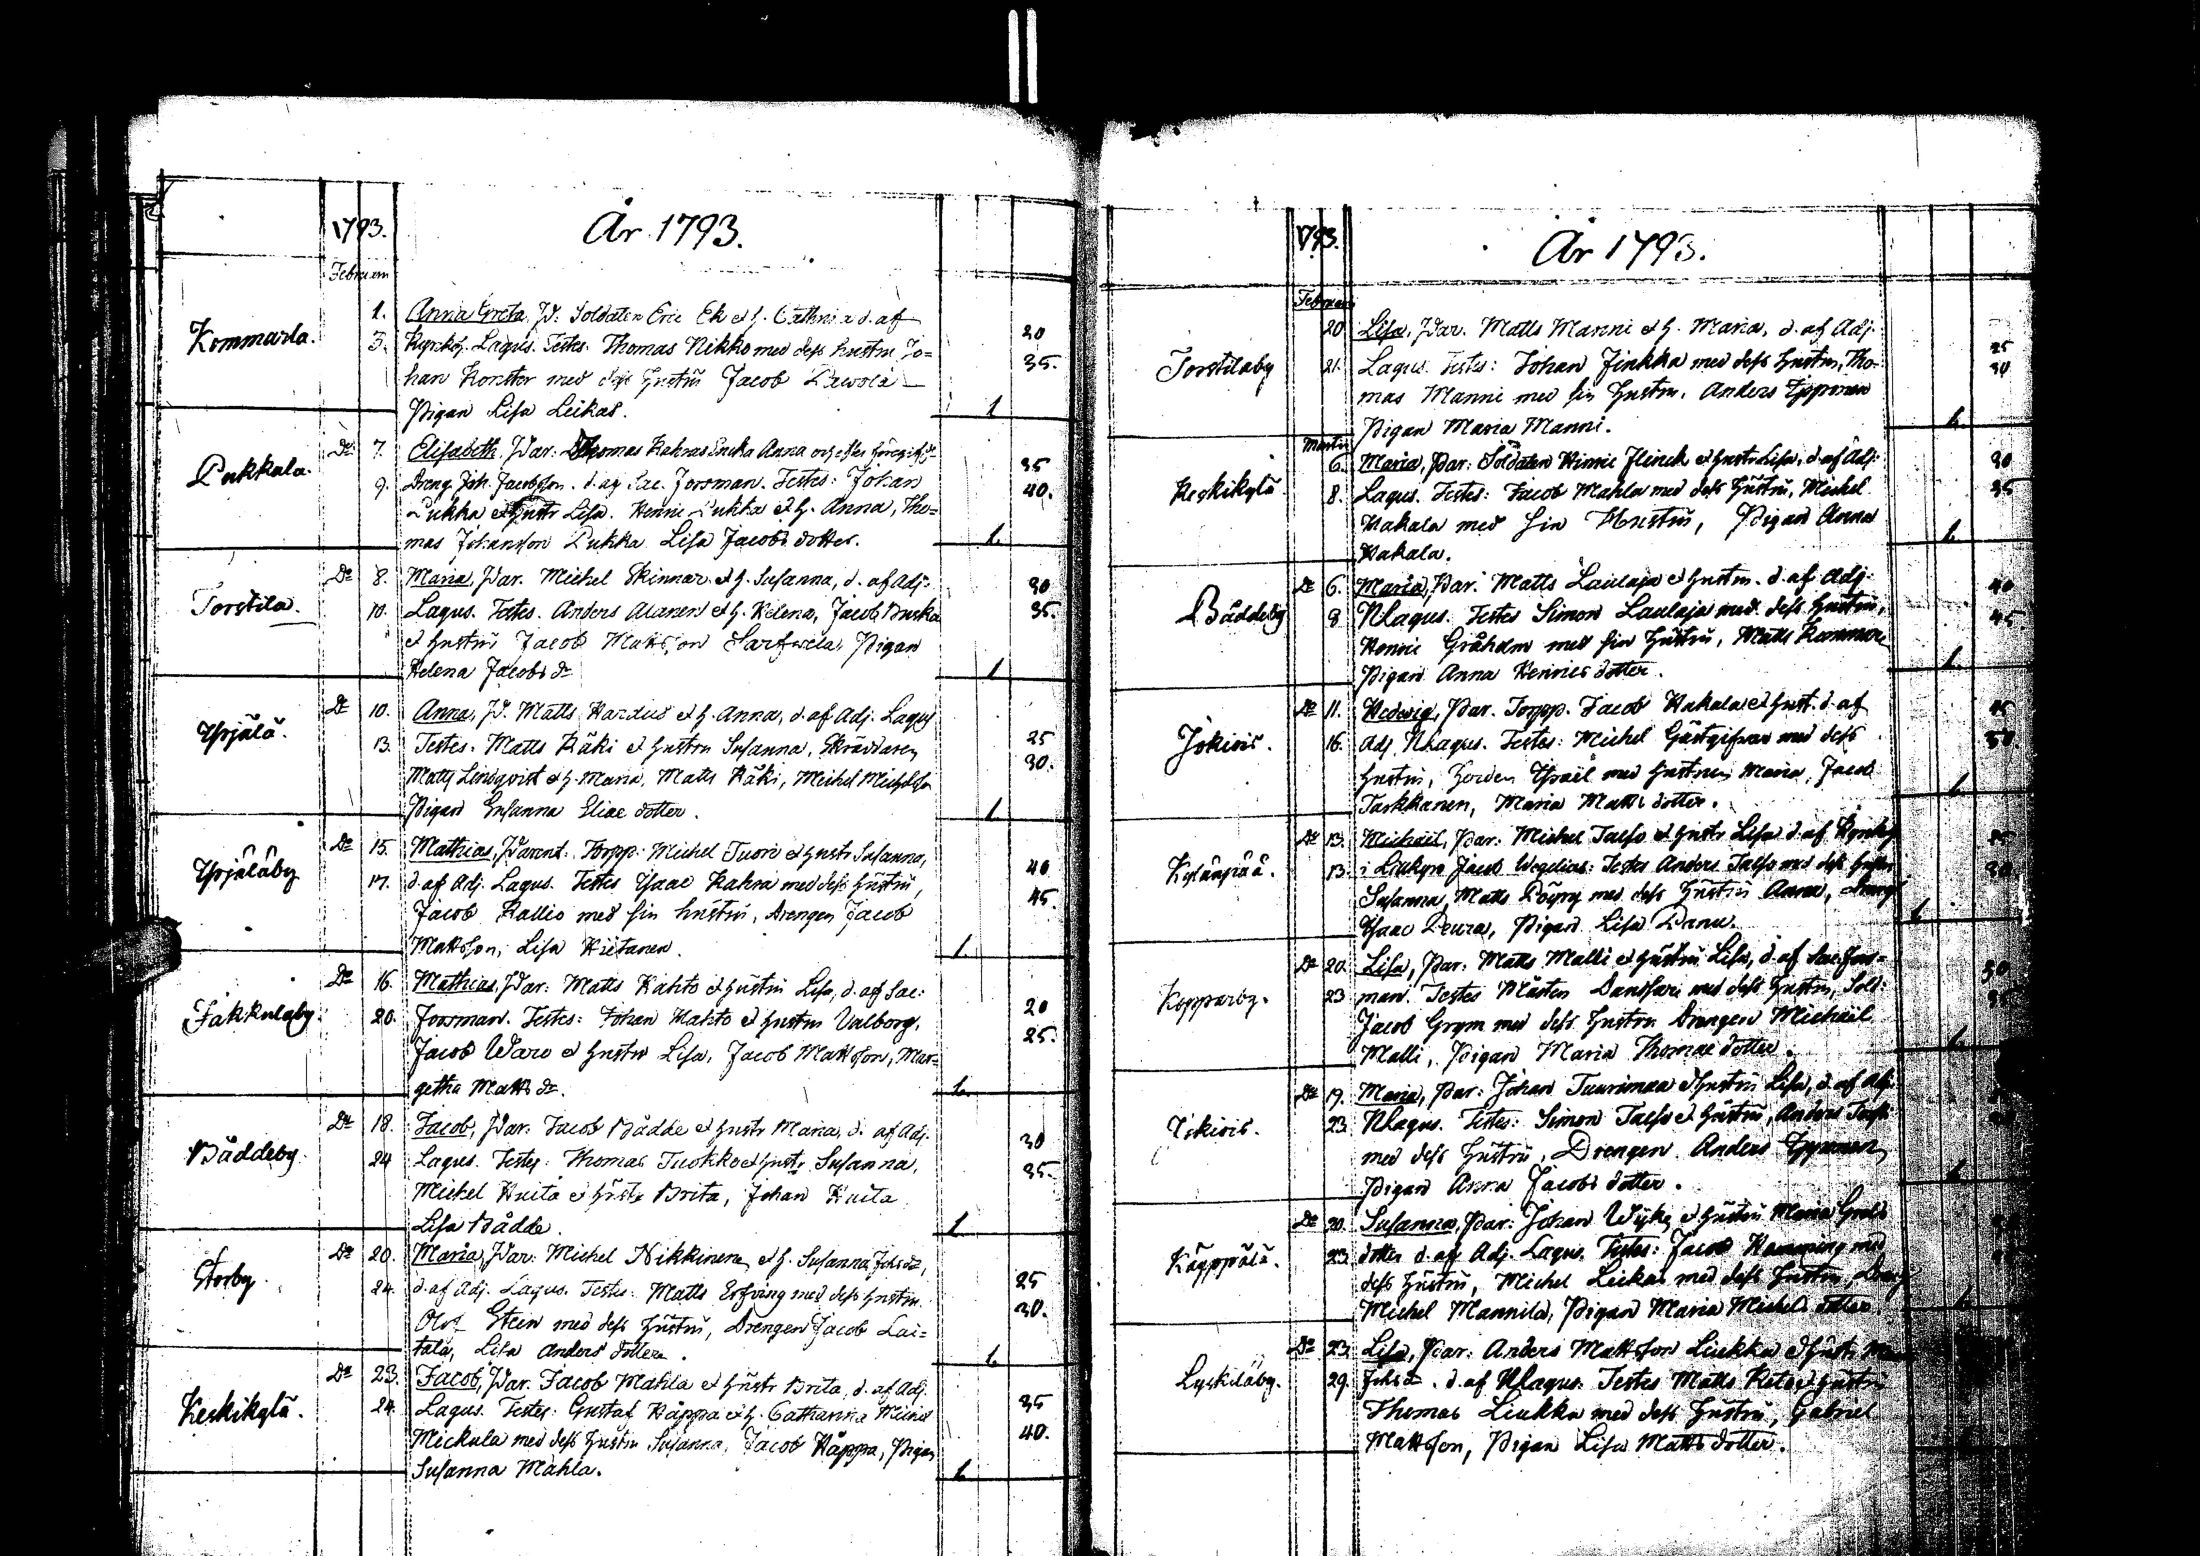 1793.
År 1793.
Februari
Kommarla.
1. Anna Greta, P: Soldaten Eric Ek et h. Cathrin a d. af
3. Kyrkoh. Lagus. Testes. Thomas Nikko med dess hustru Jo= 20
han Konster med dess hustru Jacob Lawola 35.
Pigan Lisa Leikas. 1
Pukkala.
Do 7. Elisabeth, Par: Thomas Kahras Encka Anna och
9. Dreng Joh. Jacobsson. d. af Sac. Forsman. Testes: Johan 35
Pukka et Hustr Lisa. Henric Pukka et h. Anna, Tho= 40.
mas Johansson Pukka Lisa Jacobs dotter. 1.
Torstila.
Do 8. Maria, Par. Michel Skinnar et h. Susanna, d. af Adj. 30
10. Lagus. Testes. Anders Alanen et h. Helena, Jacob Buska 35.
et Hustru Jacob Mattsson Sarfwela, Pigan
Helena Jacobs dr 1
Yrjälä.
Do 10. Anna, P. Matts Hardus et h. Anna, d. af Adj. Lagus
13. Testes. Matts Räki et Hustru Susanna, Skräddaren 25
Matts Lindqvist et h. Maria, Matts Räki, Michel Michelsson 30.
Pigan Susanna Eliae dotter. 1
Yrjäläby
Do 15. Mathias, Parent. Torpp: Michel Tuori et hustr Susanna,
17. d. af Adj. Lagus. Testes Ysaac Kahra med dess Hustru, 40
Jacob Kallio med sin hustru, drengen Jacob 45.
Mattsson, Lisa Hietanen. 1.
Jakkulaby.
Do 16. Mathias, Par: Matts Kahto et hustru Lisa, d. af Sac:
20. Forsman. Testes: Johan Mahto et hustru Valborg, 20
Jacob Waro et hustru Lisa, Jacob Mattsson, Mar= 25.
getha Matts dr. 1.
Båddeby.
Do 18. Jacob, Par: Jacob Bådde et Hustr Maria, d. af Adj. 30
24 Lagus. Testes: Thomas Tuokko et hustr Susanna, 35.
Mickel Huita et hustr Brita, Johan Huita
Lisa Bådde. 1
Storby.
Do 20. Maria, Par: Michel Nikkinen et h. Susanna Johs dr,
24. d. af Adj. Lagus. Testes: Matts Erfving med dess hustru 25
Olof Stein med dess Hustru, Drengen Jacob Lai= 30.
tala, Lisa Anders dotter. 1
Keskikylä.
Do 23. Jacob, Par. Jacob Mahla et hustr Brita, d. af Adj.
24. Lagus. Testes: Gustaf Käppa et h. Catharina 35
Mickula med dess hustru Susanna, Jacob Käppa, Pigan 40.
Susanna Mahla. 1
1793.
År 1793.
Februari
Torstilaby
20 Lisa, Par. Matts Manni et h. Maria, d. af Adj. 25
21. Lagus. Testes: Johan Jinkka med dess hustru, Tho-
mas Manni med sin Hustru. Anders Ypponen
Pigan Maria Manni. 1.
Martii
Keskikylä
6. Maria, Par: Soldaten Hinric Flinck et hustr Lisa, d. af Adj: 30
8. Lagus. Testes: Jacob Mahla med dess hustru, Michel 35
Hakala med sin Hustru, Pigan Anna
Hakala. 1.
Båddeby
Do 6. Maria, Par. Matts Laulaja et hustru. d. af Adj. 40
8 N Lagus. Testes Simon Laulaja med dess hustru, 45
Henric Gråholm med sin Hustru, Matts Kommar
Pigan Anna Henrics dotter. 1
Jokivis.
Do 11. Hedwig, Par. Torpp. Jacob Hakala et hust. d. af 45
16. Adj. N Lagus. Testes: Michel Gästgifvar med dess 50.
hustru, Ysrael med hustrun Maria, Jacob
Tarkkanen, Maria Matts dotter. 1
Kylänpää.
Do 13. Michaël, Par: Michel Talso et hustr Lisa d. af Kyrkoh
13. i Lillkyro Jacob Wegelius: Testes Anders Talso med dess hustru
Susanna, Matts Döfry med dess Hustru Anna, Dreng
Ysaac Peura, Pigan Lisa Panu. 1
Kopparby.
Do 20. Lisa, Par: Matts Malli et hustru Lisa, d. af Sac. Fors= 30
23 man. Testes Mårten Dansari med dess hustru, Sold:
Jacob Grym med dess hustru Drengen Michaël
Malli, Pigan Maria Thomae dotter. 1
Jokivis.
Do 19. Maria, Par: Johan Tuurimaa et hustru Lisa, d. af Adj.
23. N Lagus. Testes: Simon Talso et hustru, Anders
med dess Hustru, Drengen Anders Ypponen
Pigan Anna Jacobs dotter. 1
Käppälä.
Do 20. Susanna, Par: Johan Wyky et hustru Maria
23 dotter d. af Adj. Lagus. Testes: Jacob Hemming med
dess hustru, Michel Leikas med dess hustru, Dreng
Michel Mannila, Pigan Maria Michels dotter 1
Lyskiläby.
Do 23. Lisa, Par: Anders Mattsson Liukka et hustr
29. Johs dr. d. af N Lagus. Testes Matts Keto et hustru
Thomas Liukka med dess hustru, Gabriel
Mattsson, Pigan Lisa Matts dotter.